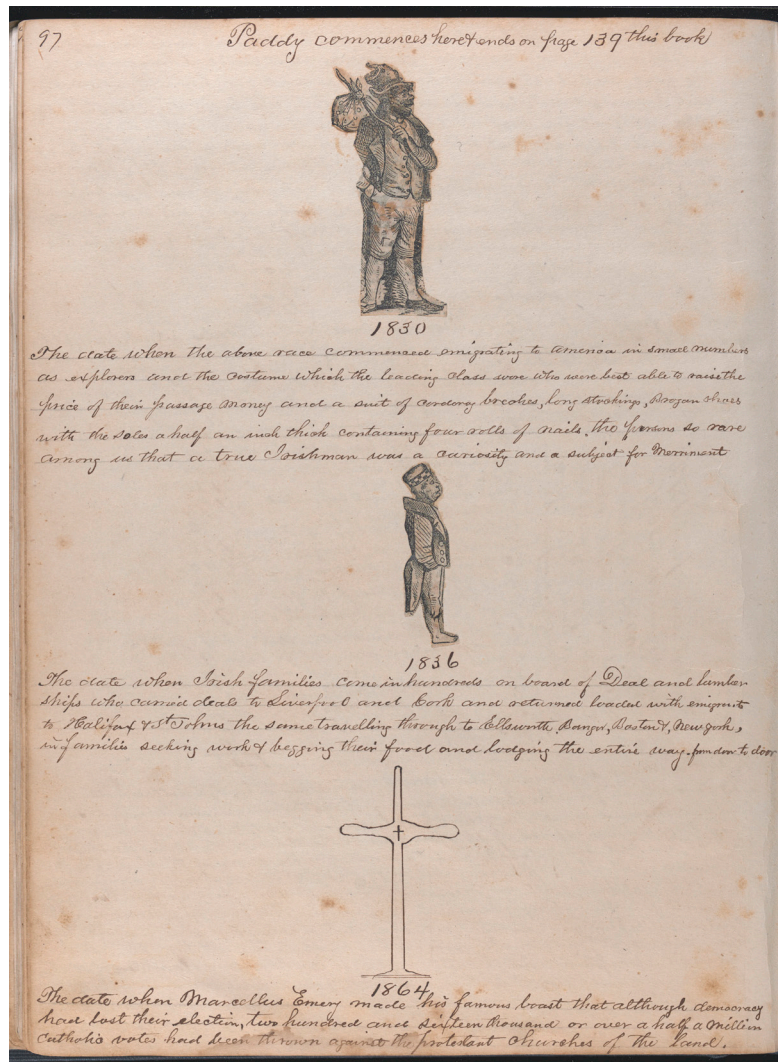 97
Paddy commences here & ends on page 139 this book
1830
The date when the above race commenced emigrating to america in small numbers
as explorers and the costume which the leading class wore who were best able to raise the
price of their passage money and a suit of cordoroy breches, long stockings, Brogan shoes
with the soles a half an inch thick containing four rolls of nails. the persons so rare
among us that a true Irishman was a curiosity and a subject for Merriment
1836
The date when Irish families come in hundreds on board of Deal and lumber
ships who carried deals to Liverpool and Cork and returned loaded with emigrants
to Halifax & St Johns the same travelling through to Ellsworth, Bangor, Boston &, New york,
in families seeking work & begging their food and lodging the entire way. from door to door
1864
The date when Marcellus Emery made his famous boast that although democracy
had lost their election, two hundred and sixteen thousand or over a half a million
Catholic votes had been thrown against the protestant churches of the Land.